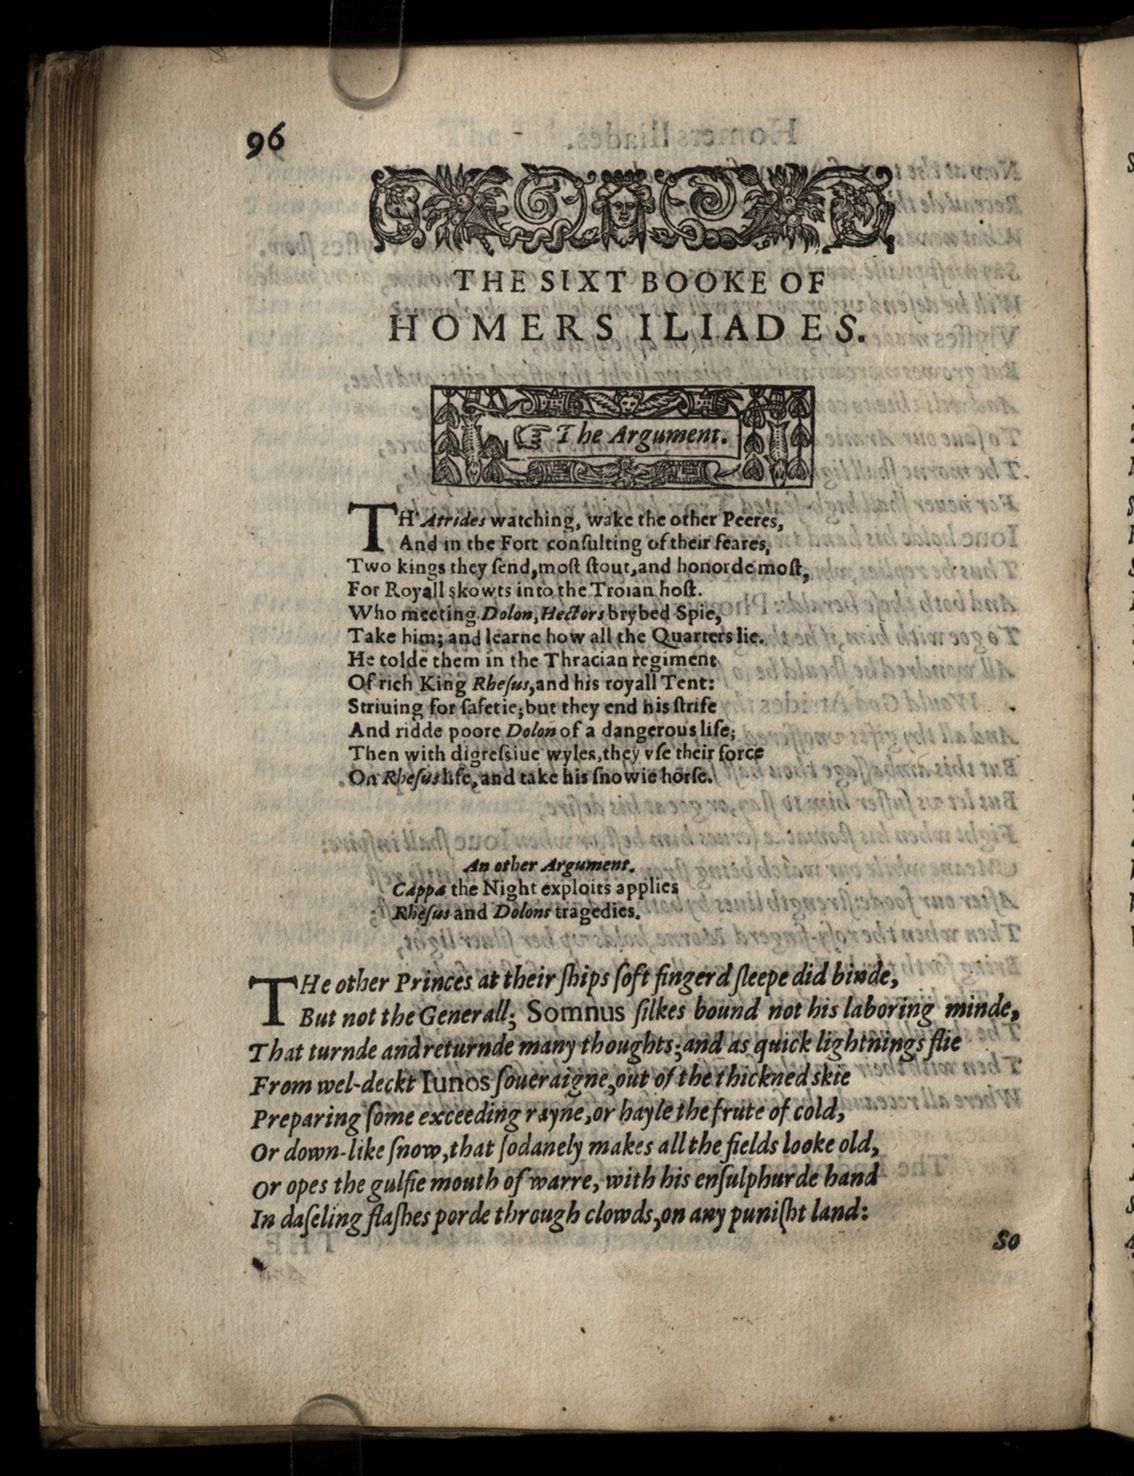 96
THE SIXT BOOKE OF
HOMERS ILIADES.
☞ The Argument.
TH' Atrides watching, wake the other Peeres,
And in the Fort conſulting of their feares,
Two kings they ſend, moſt ſtout, and honorde moſt,
For Royall skowts into the Troian hoſt.
Who meeting Dolon, Hectors brybed Spie,
Take him; and learne how all the Quarters lie.
He tolde them in the Thracian regiment
Of rich King Rheſus, and his royall Tent:
Striuing for ſafetie; but they end his ſtrife
And ridde poore Dolon of a dangerous life;
Then with digreſsiue wyles, they vſe their force
On Rheſus life, and take his ſnowie horſe.
An other Argument.
Cappa the Night exploits applies
Rheſus and Dolons tragedies.
THe other Princes at their ſhips ſoft fingerd ſleepe did binde,
But not the Generall; Somnus ſilkes bound not his laboring minde,
That turnde and returnde many thoughts; and as quick lightnings flie
From wel-deckt Iunos ſoueraigne, out of the thickned skie
Preparing ſome exceeding rayne, or hayle the frute of cold,
Or down-like ſnow, that ſodanely makes all the fields looke old,
Or opes the gulfie mouth of warre, with his enſulphurde hand
In daſeling flaſhes porde through clowds, on any puniſht land:
So